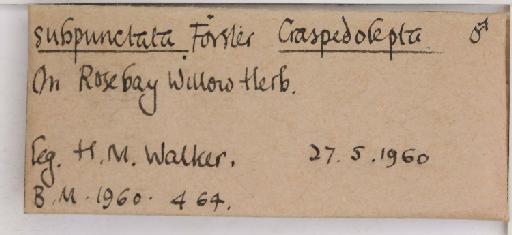 subpunctata Förster Craspedolepta ♂
On Rosebay Willow Herb.
leg. H.M. Walker. 27.5.1960
B.M. 1960. 464.